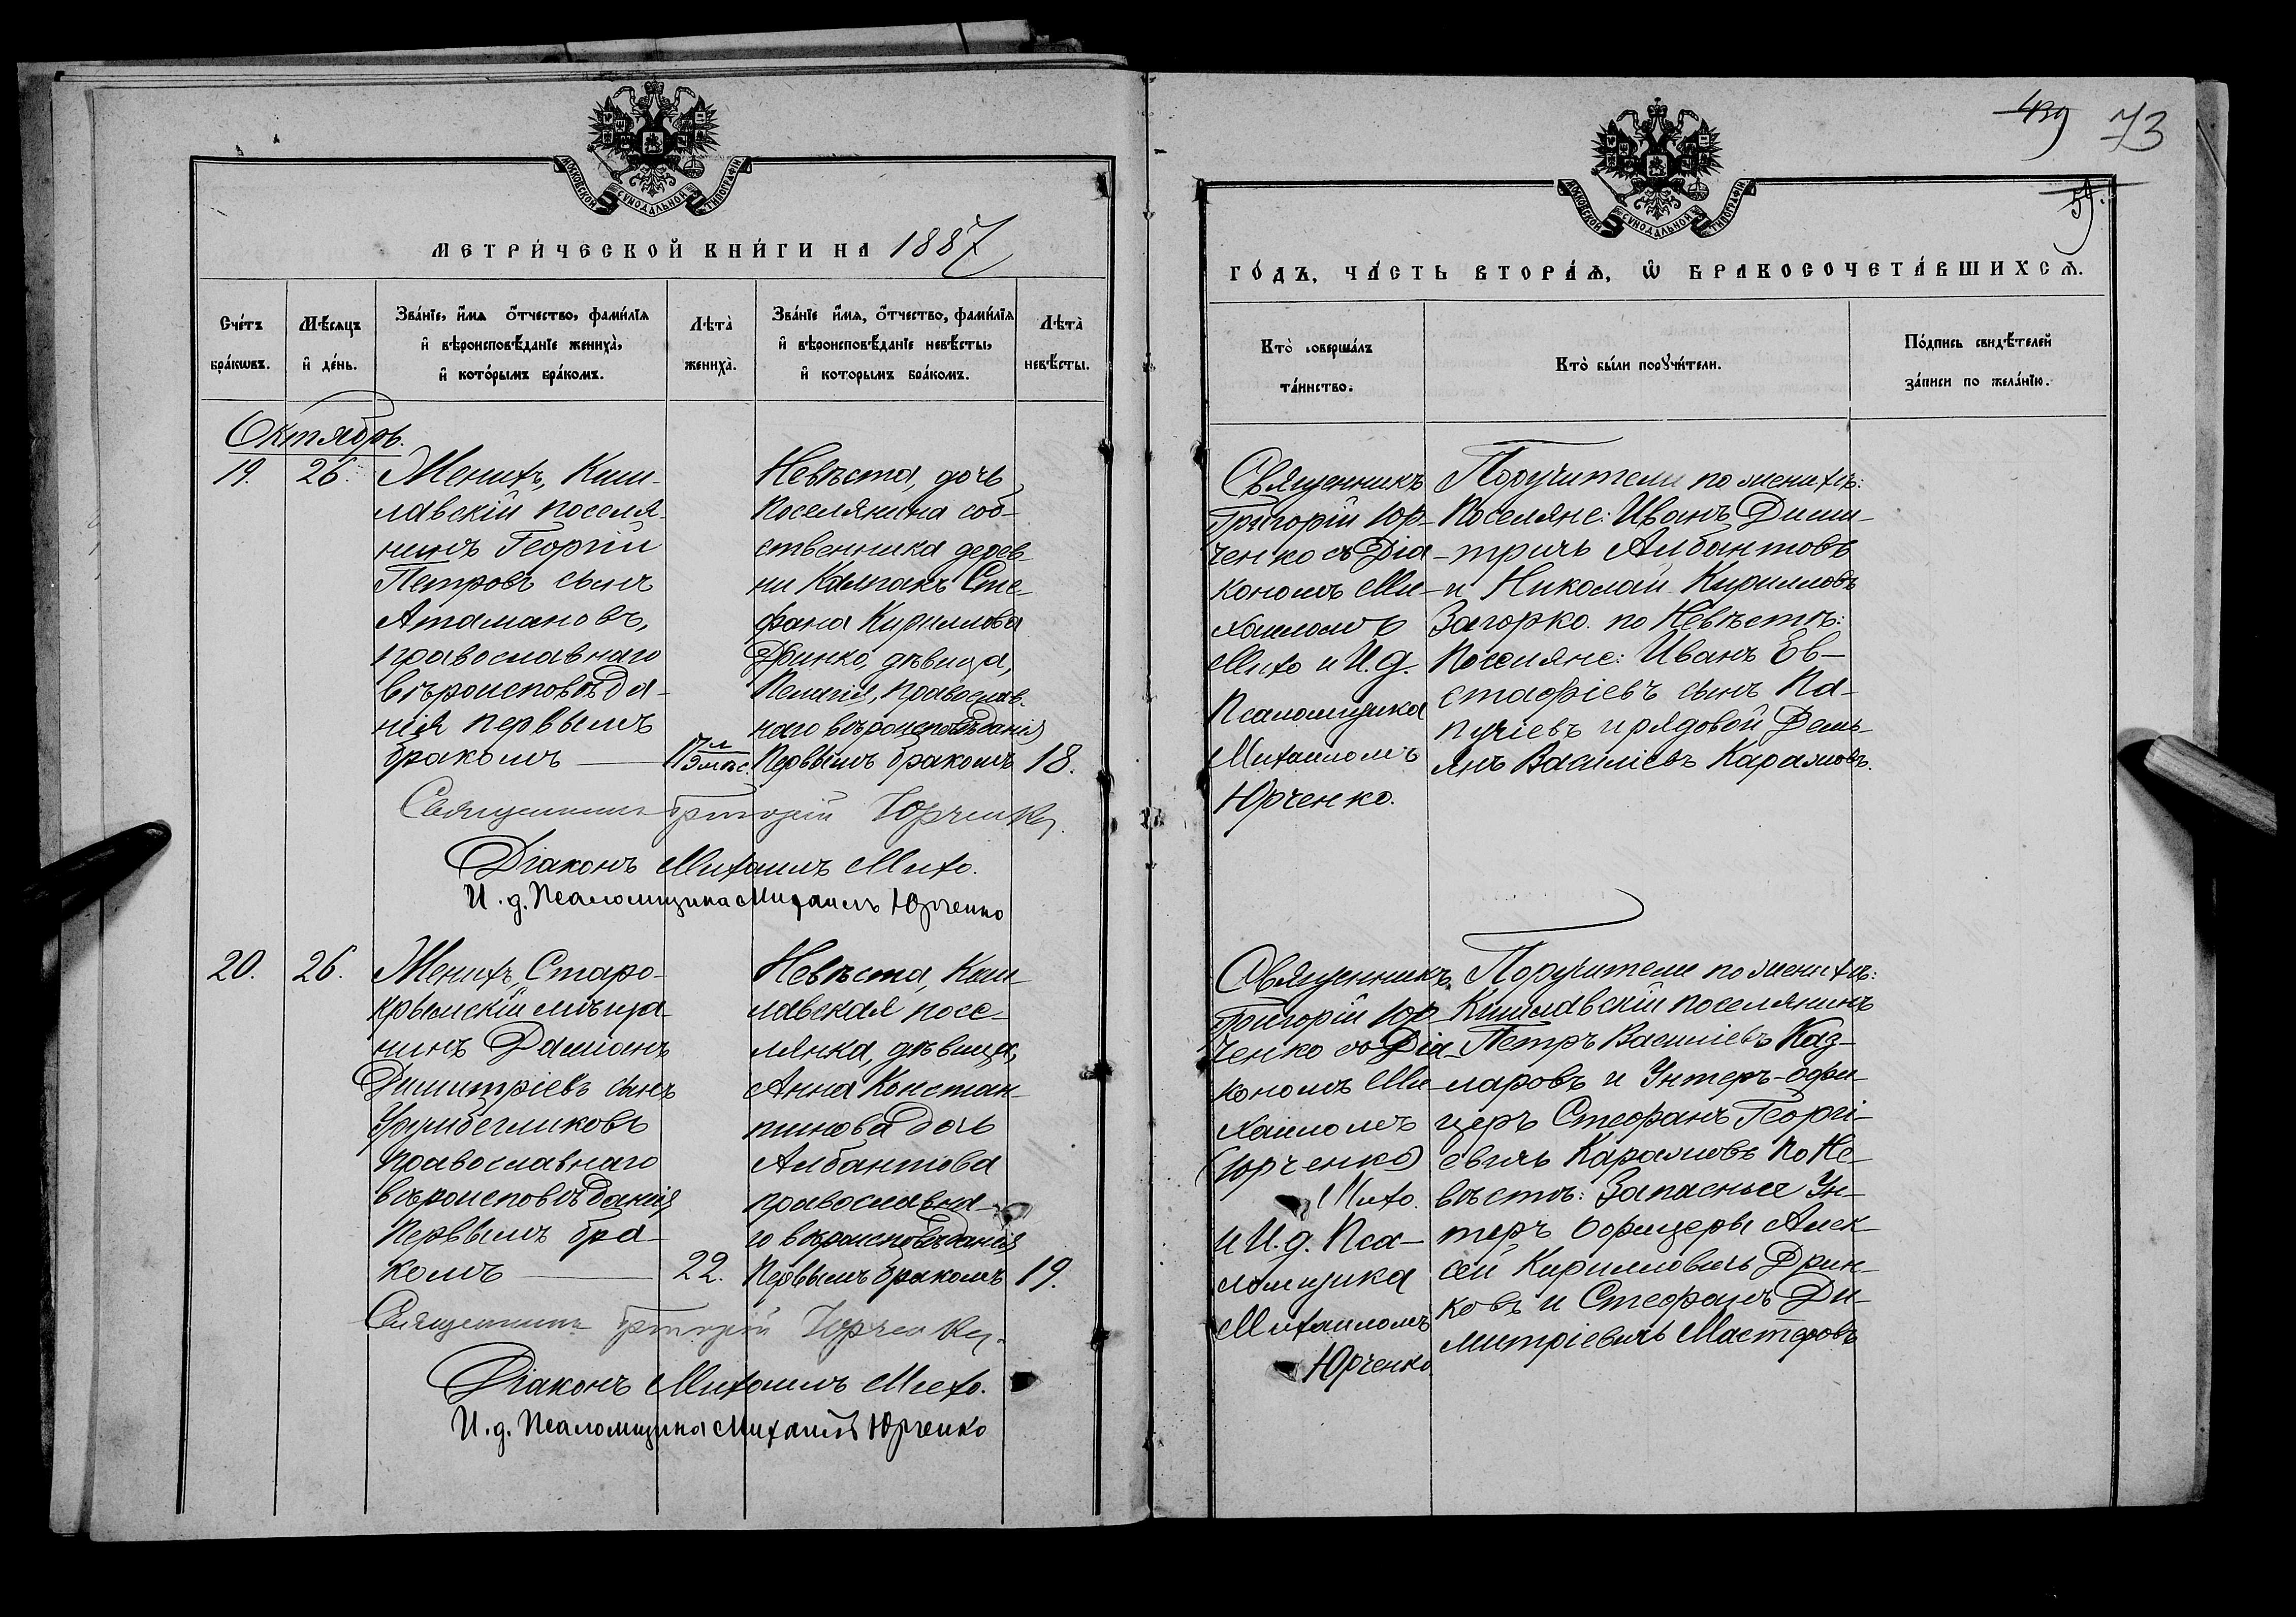 МОСКОВСКОЙ СѴНОДАЛЬНОЙ ТИПОГРАФІИ
МЕТРИ́ЧЕСКОЙ КНИ́ГИ НА 1887
Сче́тъ бра́кωвъ.
Мѣ́сяцъ и҆ де́нь.
Зва́нїе, и҆́мя ѻ҆́тчество, фами́лїя и҆ вѣроисповѣ́данїе жениха̀, и҆ кото́рымъ бра́комъ.
Лѣта̀ жениха̀.
Зва́нїе и҆́мя, ѻ҆́тчество, фами́лїя и҆ вѣроисповѣ́данїе невѣ́сты, и҆ которымъ бра́комъ.
Лѣта̀ невѣ́сты.
Октябрь.
19.
26.
Женихъ, Киш-
лавскій поселя-
нинъ Георгій
Петровъ сынъ
Атамановъ,
православнаго
вѣроисповѣда-
нія первымъ
бракомъ
17 л. 9 мѣс.
Невѣста, дочь
Поселянина соб-
ственника дерев-
ни Калпакъ Сте-
фана Кириллова
Дринко, дѣвица,
Пелагія, православ-
наго вѣроисповѣданія
Первымъ бракомъ
18.
Священникъ Григорій Юрченко.
Діаконъ Михаилъ Михо.
И. д. Псаломщика Михаилъ Юрченко
20.
26.
Женихъ, Старо-
крымскій мѣща-
нинъ Даміанъ
Димитріевъ сынъ
Урумбегликовъ
Православнаго
вѣроисповѣданія
Первымъ бра-
комъ
22.
Невѣста, Киш-
лавская посе-
лянка, дѣвица,
Анна Констан-
тинова дочь
Албантова
православна-
го вѣроисповѣданія
Первымъ бракомъ
19.
Священникъ Григорій Юрченко.
Діаконъ Михаилъ Михо.
И. д. Псаломщика Михаилъ Юрченко
439 73
59.
МОСКОВСКОЙ СѴНОДАЛЬНОЙ ТИПОГРАФІИ
ГО́ДЪ, ЧА́СТЬ ВТОРА́Ѧ, Ѽ БРАКОСОЧЕТА́ВШИХСѦ.
Кто̀ соверша́лъ та́инство.
Кто̀ бы́ли порꙋчи́тели.
По́дпись свидѣ́телей за́писи по жела́нїю.
Священникъ
Григорій Юр-
ченко съ Діа-
кономъ Ми-
хаиломъ
Михо и И. д.
Псаломщика
Михаиломъ
Юрченко.
Поручители по женихѣ:
Поселяне: Иванъ Дими-
тричъ Албантовъ
и Николай Кирилловъ
Загорко. по Невѣстѣ:
Поселяне: Иванъ Ев-
стафіевъ сынъ Па-
пучіевъ и рядовой Демь-
янъ Василіевъ Караяновъ.
Священникъ
Григорій Юр-
ченко съ Діа-
кономъ Ми-
хаиломъ
(Юрченко)
Михо.
и И. д. Пса-
ломщика
Михаиломъ
Юрченко
Поручители по женихѣ:
Кишлавскій поселянинъ
Петръ Василіевъ Каз-
ларовъ и Унтеръ-офи-
церъ Стефанъ Георгі-
евичъ Караяновъ По Не-
вѣстѣ: Запасные Ун-
теръ Офицеры Алек-
сѣй Кирилловичъ Дрин-
ковъ и Стефанъ Ди-
митріевичъ Мастеровъ